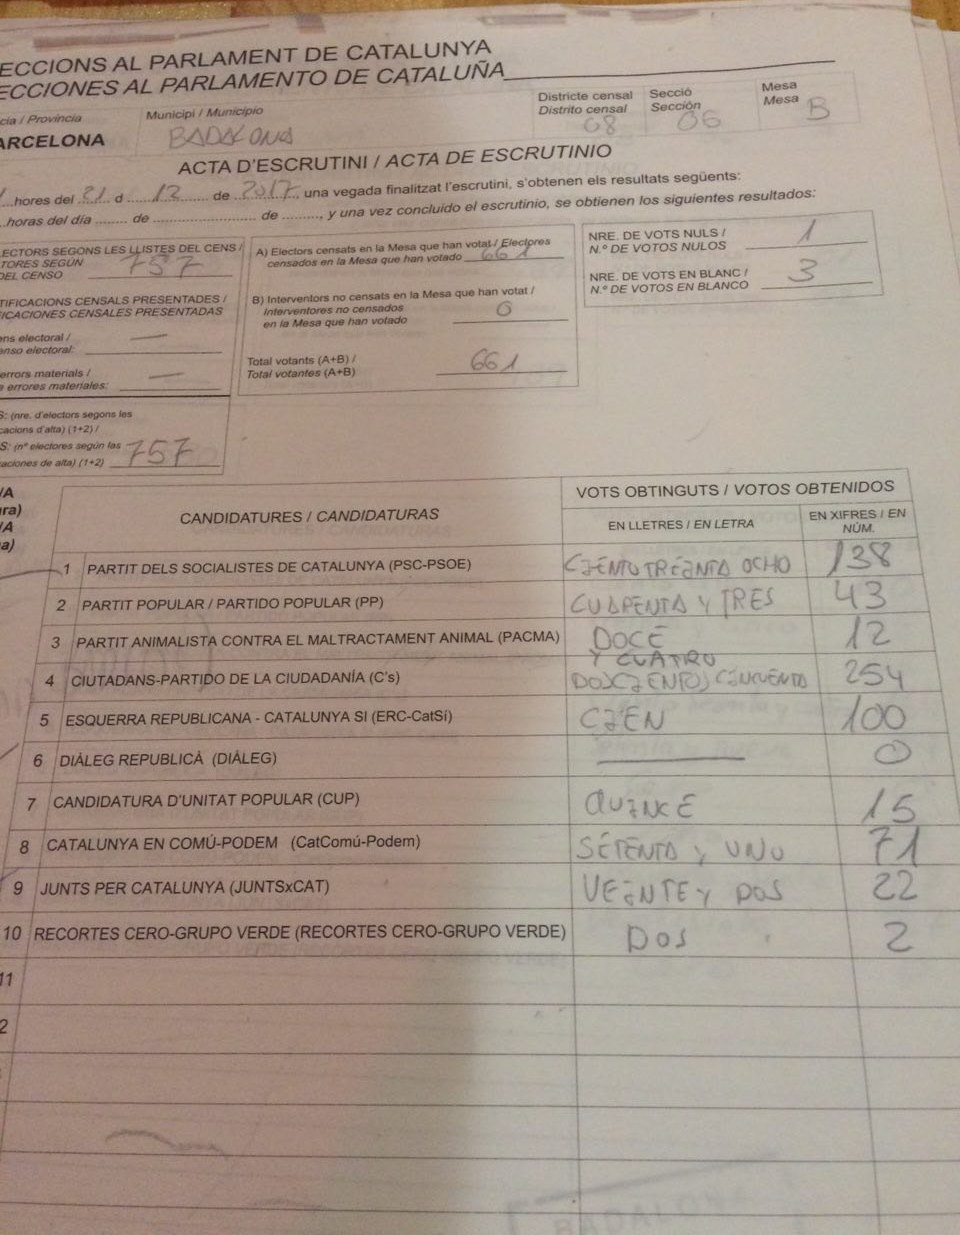 ECCIONS AL PARLAMENT DE CATALUNYA
ECCIONES AL PARLAMENTO DE CATALUÑA
cia / Provincia
ARCELONA
Municipi / Municipio
BADALONA
Districte censal
Distrito censal
08
Secció
Sección
06
Mesa
Mesa
B
ACTA D'ESCRUTINI / ACTA DE ESCRUTINIO
hores del 21 d 12 de 2017, una vegada finalitzat l'escrutini, s'obtenen els resultats següents:
horas del día ....... de ...................... de ........, y una vez concluido el escrutinio, se obtienen los siguientes resultados:
ECTORS SEGONS LES LLISTES DEL CENS /
TORES SEGÚN
DEL CENSO 757
TIFICACIONS CENSALS PRESENTADES /
ICACIONES CENSALES PRESENTADAS
ens electoral /
enso electoral: —
errors materials /
e errores materiales: —
S: (nre. d'electors segons les
cacions d'alta) (1+2) /
S: (nº electores según las
caciones de alta) (1+2) 757
A) Electors censats en la Mesa que han votat / Electores
censados en la Mesa que han votado 661
B) Interventors no censats en la Mesa que han votat /
Interventores no censados
en la Mesa que han votado 0
Total votants (A+B) /
Total votantes (A+B) 661
NRE. DE VOTS NULS /
N.º DE VOTOS NULOS 1
NRE. DE VOTS EN BLANC /
N.º DE VOTOS EN BLANCO 3
/A
ra)
/A
a)
CANDIDATURES / CANDIDATURAS
VOTS OBTINGUTS / VOTOS OBTENIDOS
EN LLETRES / EN LETRA
EN XIFRES / EN
NÚM.
1 PARTIT DELS SOCIALISTES DE CATALUNYA (PSC-PSOE) CIENTO TREINTA OCHO 138
2 PARTIT POPULAR / PARTIDO POPULAR (PP) CUARENTA Y TRES 43
3 PARTIT ANIMALISTA CONTRA EL MALTRACTAMENT ANIMAL (PACMA) DOCE 12
Y CUATRO
4 CIUTADANS-PARTIDO DE LA CIUDADANÍA (C's) DOSCIENTOS CINCUENTA 254
5 ESQUERRA REPUBLICANA - CATALUNYA SI (ERC-CatSí) CIEN 100
6 DIÀLEG REPUBLICÀ (DIÀLEG) — 0
7 CANDIDATURA D'UNITAT POPULAR (CUP) QUINCE 15
8 CATALUNYA EN COMÚ-PODEM (CatComú-Podem) SETENTA Y UNO 71
9 JUNTS PER CATALUNYA (JUNTSxCAT) VEINTE Y DOS 22
10 RECORTES CERO-GRUPO VERDE (RECORTES CERO-GRUPO VERDE) DOS 2
11
2
BADALONA